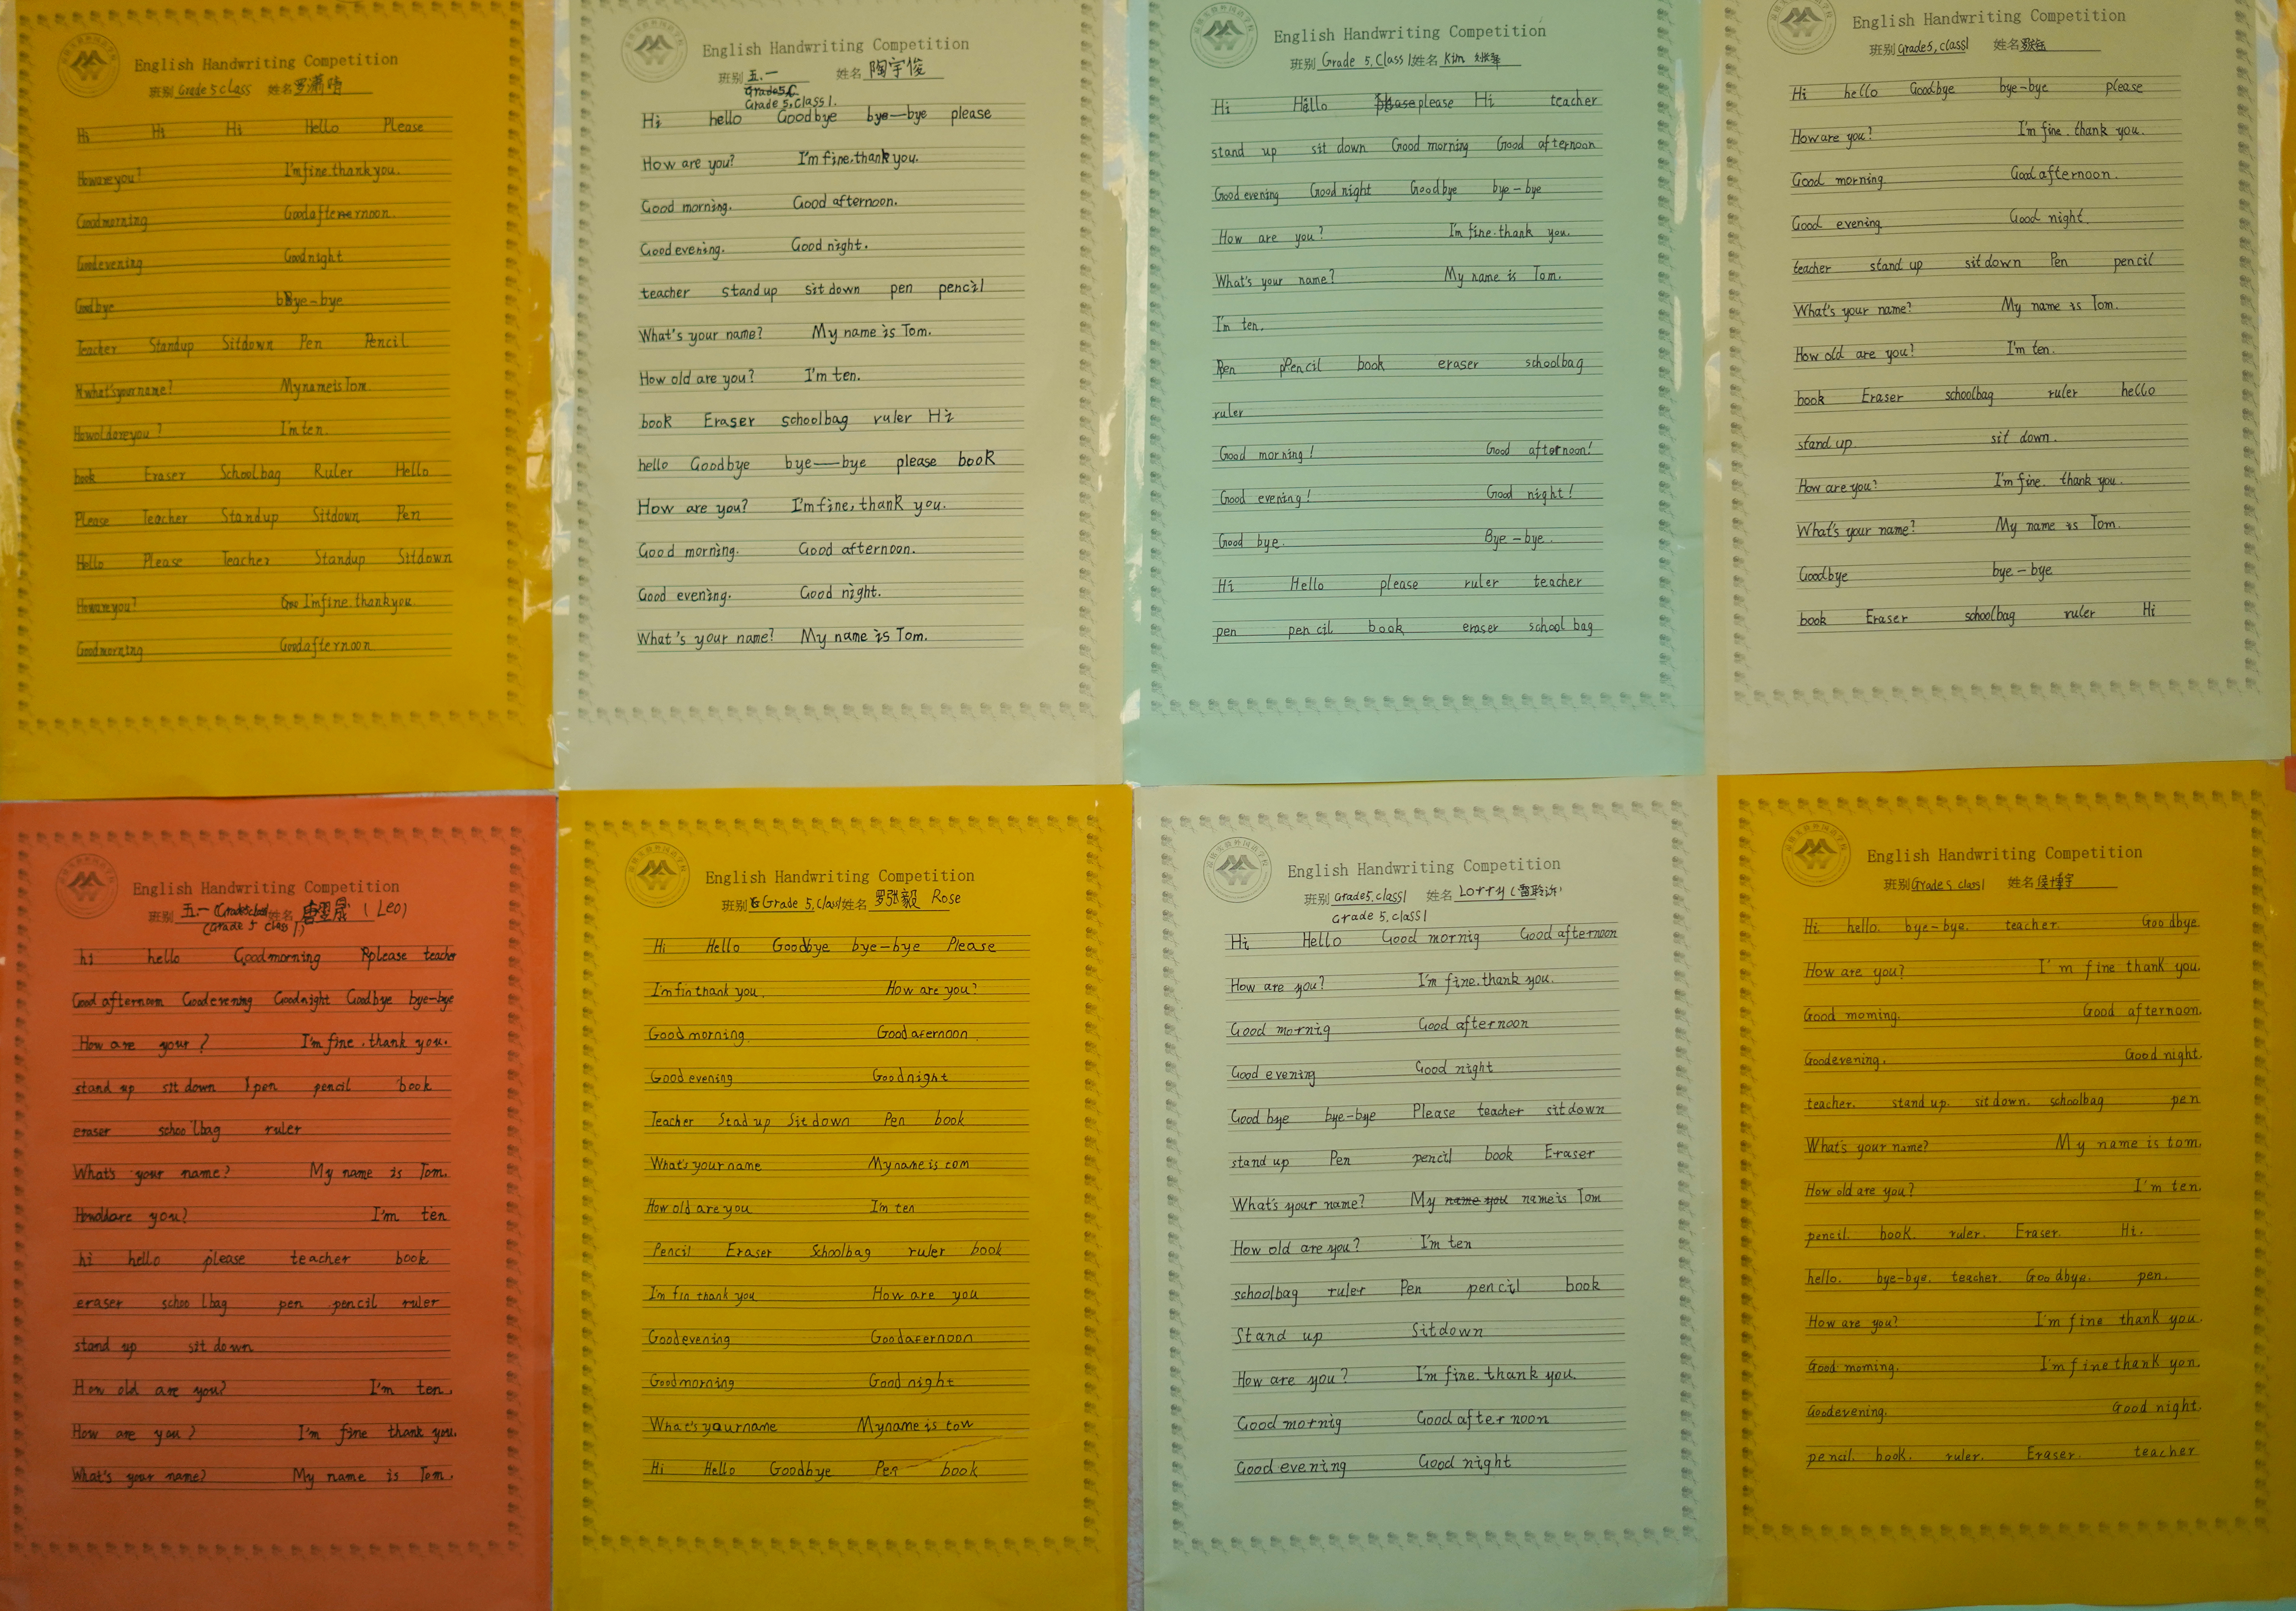 English Handwriting Competition
班别 Grade 5 class 姓名 罗
Hi Hi Hi Hello Please
Howareyou? I'mfine.thankyou.
Goodmorning Goodafternoon.
Goodevening Goodnight
Goodbye bBye-bye
Teacher Standup Sitdown Pen Pencil
What'syourname? MynameisTom
Howoldareyou? I'mten.
book Eraser Schoolbag Ruler Hello
Please Teacher Standup Sitdown Pen
Hello Please Teacher Standup Sitdown
Howareyou? Goo I'mfine.thankyou.
Goodmorning Goodafternoon
English Handwriting Competition
班别 五.一 姓名 陶宇俊
Grade5,C
Grade 5,Class1.
Hi hello Goodbye bye—bye please
How are you? I'm fine.thank you.
Good morning. Good afternoon.
Good evening. Good night.
teacher stand up sit down pen pencil
What's your name? My name is Tom.
How old are you? I'm ten.
book Eraser schoolbag ruler Hi
hello Goodbye bye—bye please book
How are you? I'm fine, thank you.
Good morning. Good afternoon.
Good evening. Good night.
What's your name? My name is Tom.
English Handwriting Competition
班别 Grade 5,Class1 姓名 Kim
Hi Hello please Hi teacher
stand up sit down Good morning Good afternoon
Good evening Good night Goodbye bye-bye
How are you? I'm fine.thank you.
What's your name? My name is Tom.
I'm ten.
Pen pencil book eraser schoolbag
ruler
Good morning! Good afternoon!
Good evening! Good night!
Good bye. Bye-bye.
Hi Hello please ruler teacher
pen pencil book eraser school bag
English Handwriting Competition
班别 Grade5,class1 姓名
Hi hello Goodbye bye-bye please
How are you? I'm fine. thank you.
Good morning Good afternoon.
Good evening Good night.
teacher stand up sit down Pen pencil
What's your name? My name is Tom.
How old are you? I'm ten.
book Eraser schoolbag ruler hello
stand up. sit down.
How are you? I'm fine. thank you.
What's your name? My name is Tom.
Goodbye bye-bye
book Eraser schoolbag ruler Hi
English Handwriting Competition
班别 五.一 (Grade5class1 姓名 (Leo)
(Grade 5 class 1)
hi hello Goodmorning Rplease teacher
Good afternoon Good evening Goodnight Goodbye bye-bye
How are your? I'm fine.thank you.
stand up sit down pen pencil book
eraser schoolbag ruler
What's your name? My name is Tom.
Howoldare you? I'm ten
hi hello please teacher book
eraser schoolbag pen pencil ruler
stand up sit down
How old are you? I'm ten.
How are you? I'm fine thank you.
What's your name? My name is Tom.
English Handwriting Competition
班别 Grade 5,class1 姓名 罗张毅 Rose
Hi Hello Goodbye bye-bye Please
I'm fin thank you. How are you?
Good morning. Good aernoon.
Good evening Goodnight
Teacher Stad up Sit down Pen book
What's your name My name is com
How old are you I'm ten
Pencil Eraser Schoolbag ruler book
I'm fin thank you How are you
Good evening Goodaernoon
Goodmorning Good night
What's yourname Myname is tow
Hi Hello Goodbye Pen book
English Handwriting Competition
班别 Grade5,class1 姓名 Lorry (雷聆沂)
Grade 5,class1
Hi Hello Good mornig Good afternoon
How are you? I'm fine.thank you.
Good mornig Good afternoon
Good evening Good night
Good bye bye-bye Please teacher sit down
stand up Pen pencil book Eraser
What's your name? My name you name is Tom
How old are you? I'm ten
schoolbag ruler Pen pencil book
Stand up Sitdown
How are you? I'm fine.thank you.
Good mornig Good afternoon
Good evening Good night
English Handwriting Competition
班别 Grade 5 class1 姓名 侯博宇
Hi hello. bye-bye. teacher. Goodbye.
How are you? I'm fine thank you.
Good moming. Good afternoon.
Goodevening. Good night.
teacher. stand up. sit down. schoolbag pen
What's your name? My name is tom.
How old are you? I'm ten.
pencil. book. ruler. Eraser. Hi.
hello. bye-bye. teacher. Goodbye. pen.
How are you? I'm fine thank you.
Good moming. I'm fine thank yon.
Goodevening. Good night.
pencil. book. ruler. Eraser. teacher